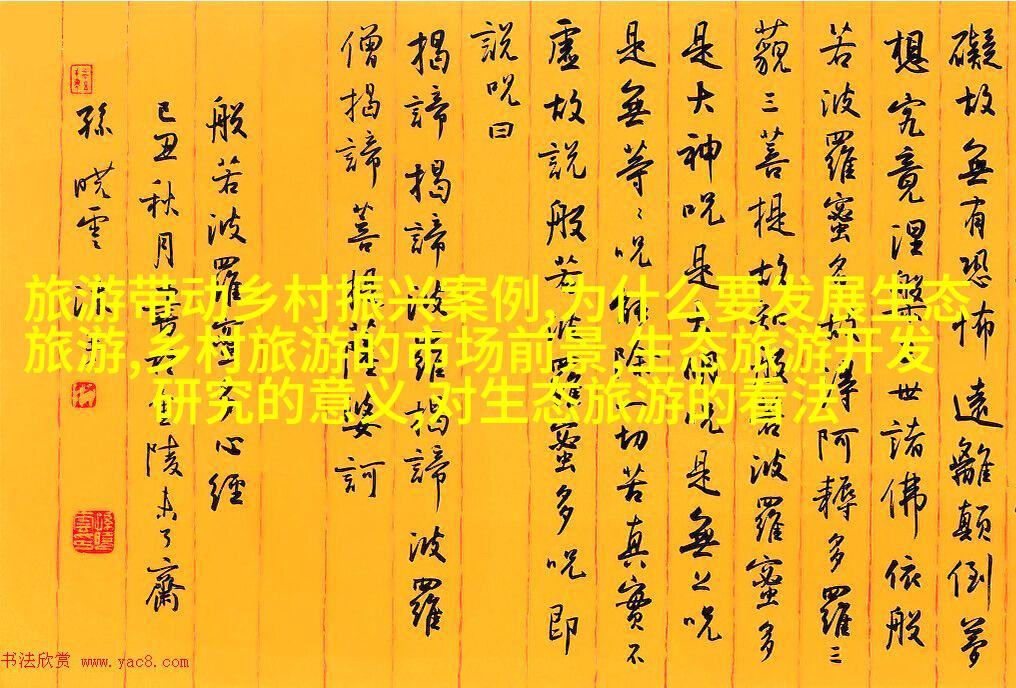 礙故無有恐怖遠離顛倒夢
想究竟涅槃三世諸佛依般
若波羅蜜多故得阿耨多羅三
藐三菩提故知般若波羅蜜多
是大神呪是大明呪是無上呪
是無等〻呪能除一切苦真實不
虛故說般若波羅蜜多呪即
說呪曰
揭諦揭諦波羅揭諦波羅
僧揭諦菩提薩婆訶
般若波羅蜜多心經
己丑秋月書於金陵未了齋
孫曉雲
旅游带动乡村振兴案例,为什么要发展生态
旅游,乡村旅游的市场前景,生态旅游开发
研究的意义,对生态旅游的看法
书法欣赏 www.yac8.com